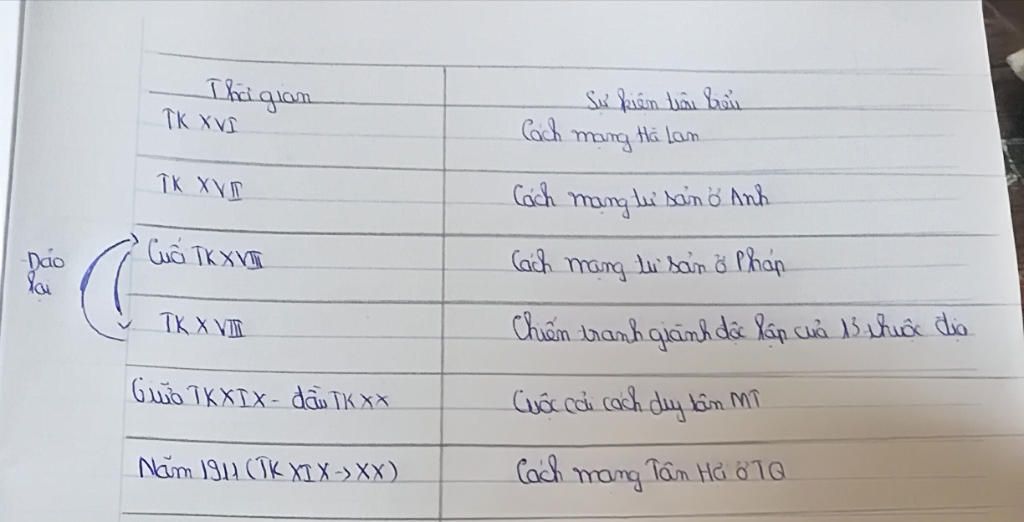 Thời gian
Sự kiện tiêu biểu
TK XVI
Cách mạng Hà Lan
TK XVII
Cách mạng tư sản ở Anh
Đảo
lại
Cuối TK XVIII
Cách mạng tư sản ở Pháp
TK XVIII
Chiến tranh giành độc lập của 13 thuộc địa
Giữa TK XIX - đầu TK XX
Cuộc cải cách duy tân MT
Năm 1911 (TK XIX -> XX)
Cách mạng Tân Hợi ở TQ